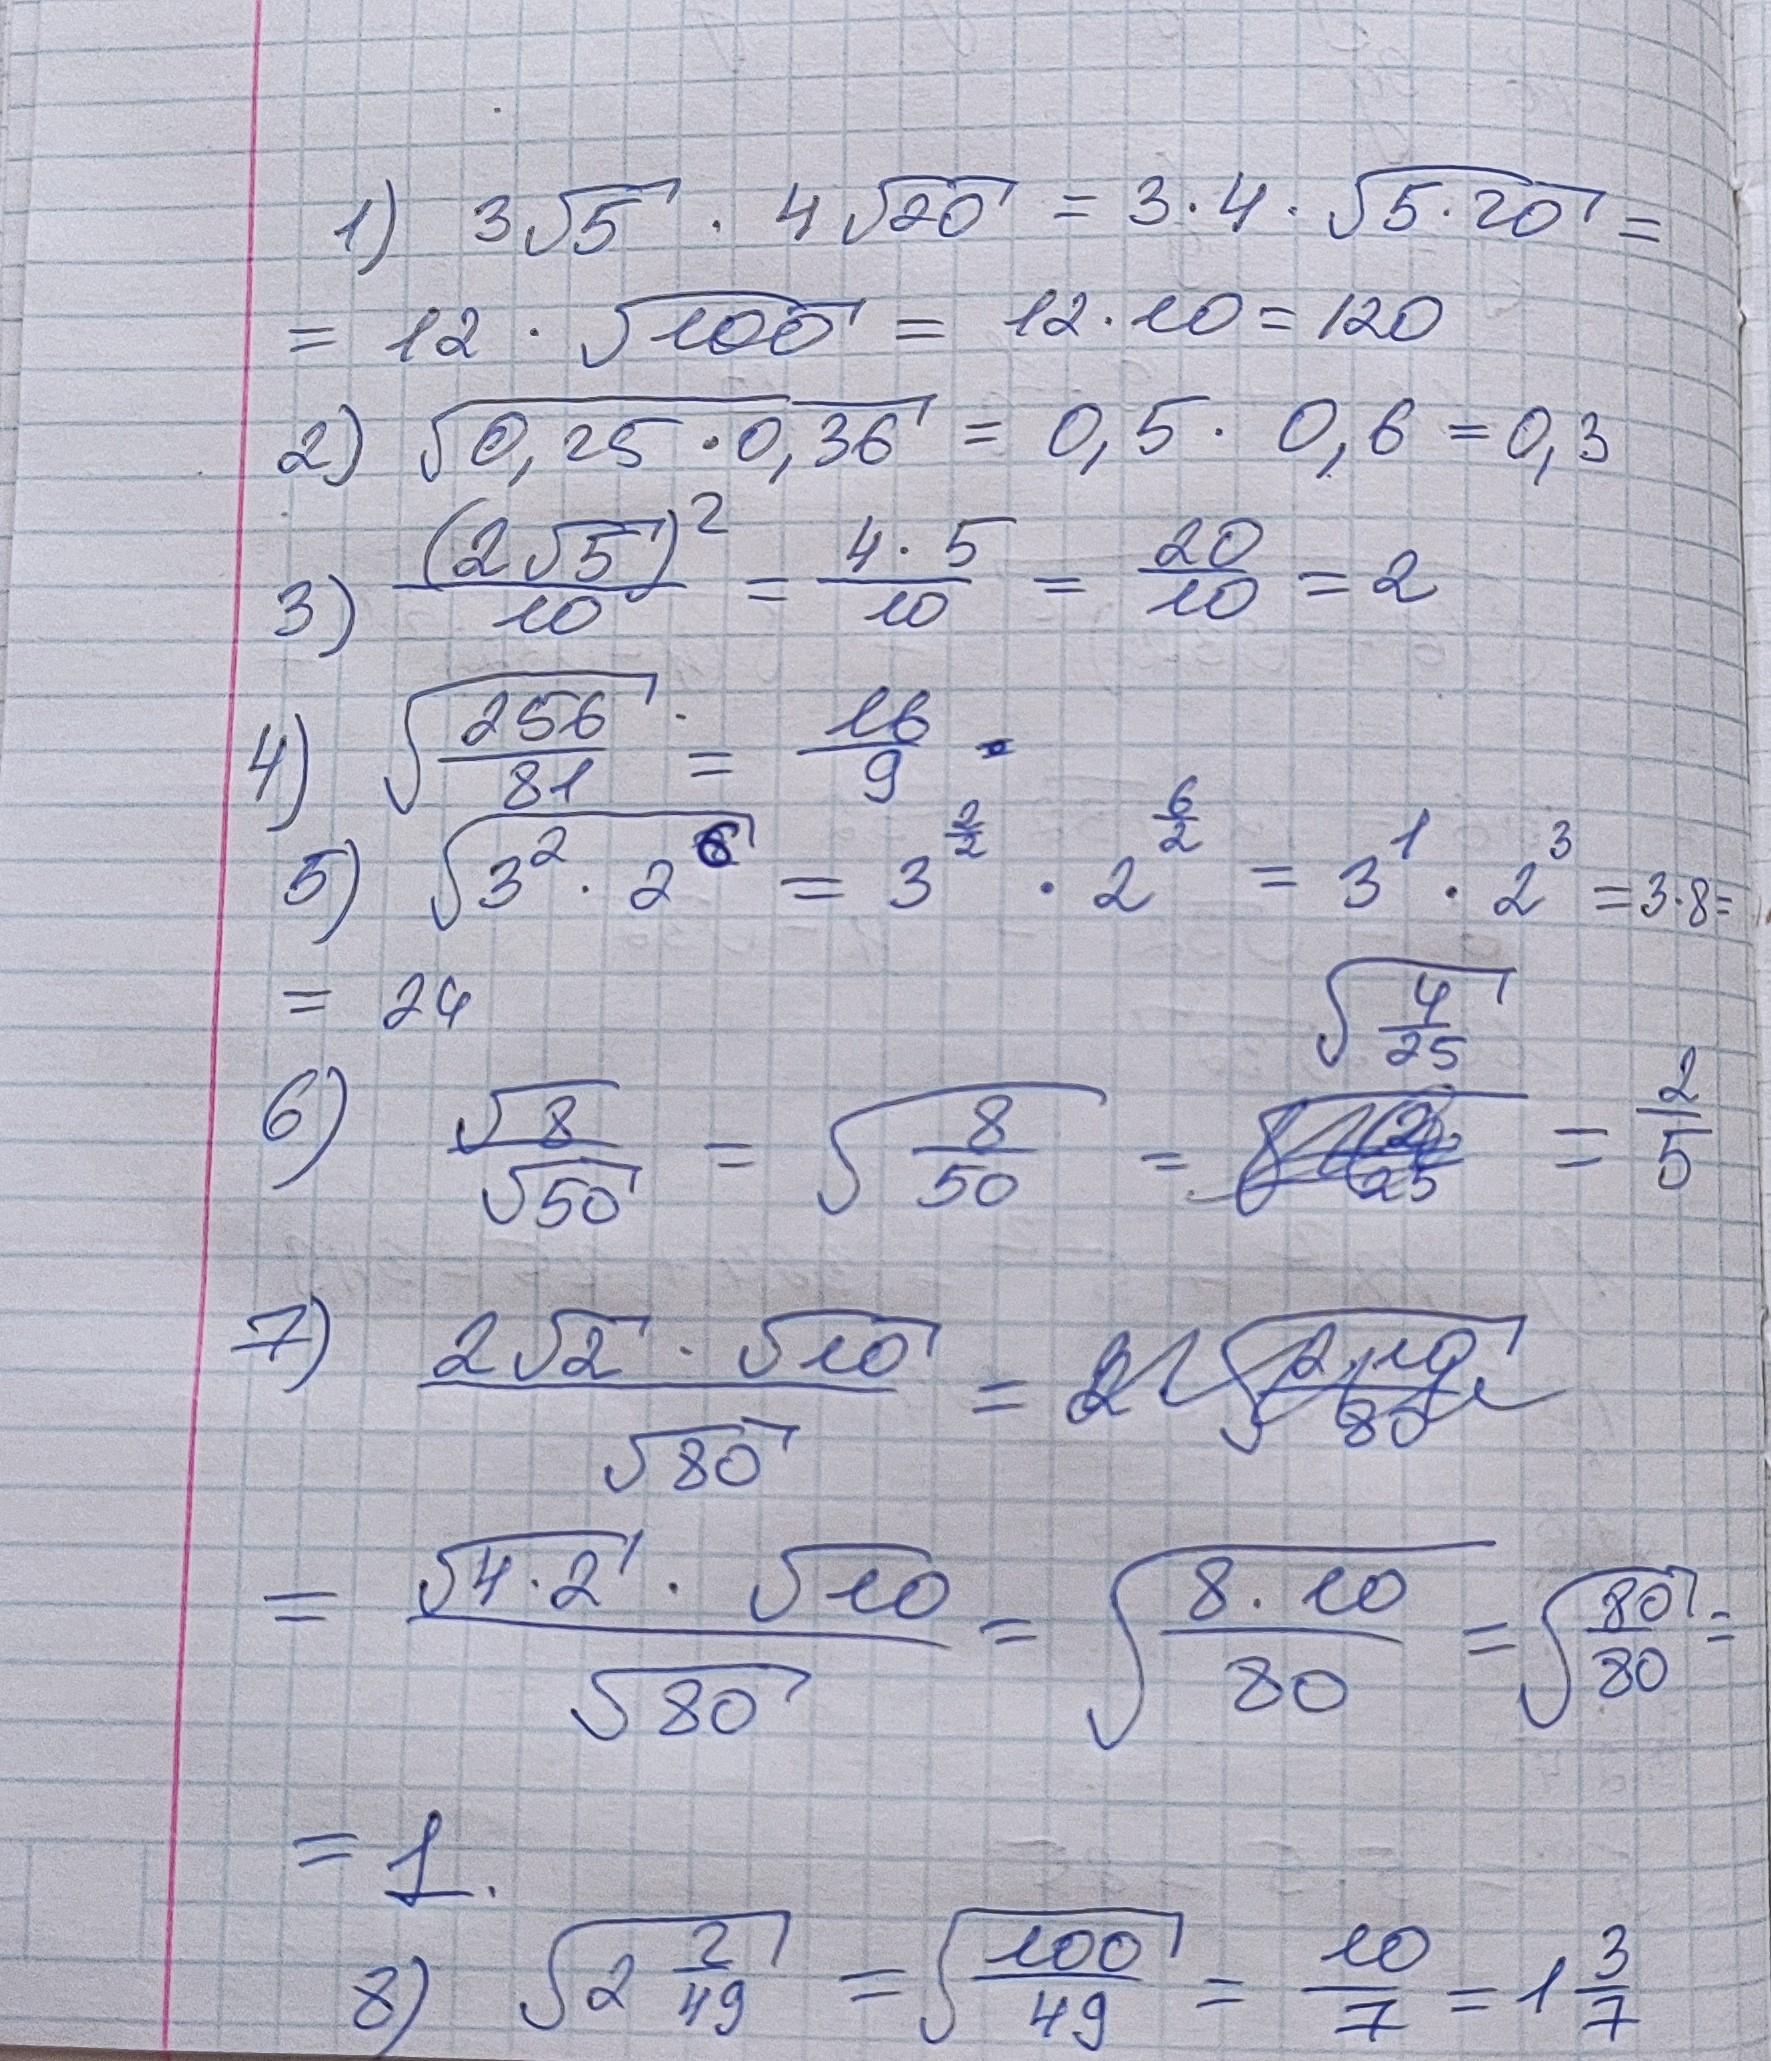 1) 3√5 · 4√20 = 3·4·√(5·20) =
= 12 · √100 = 12·10 = 120
2) √(0,25·0,36) = 0,5 · 0,6 = 0,3
3) (2√5)²/10 = (4·5)/10 = 20/10 = 2
4) √(256/81) = 16/9
5) √(3²·2⁶) = 3^(2/2) · 2^(6/2) = 3¹ · 2³ = 3·8 =
= 24
6) √8/√50 = √(8/50) = √(4/25) = 2/5
7) (2√2 · √10)/√80 =
= (√(4·2) · √10)/√80 = √((8·10)/80) = √(80/80) =
= 1.
8) √(2 2/49) = √(100/49) = 10/7 = 1 3/7